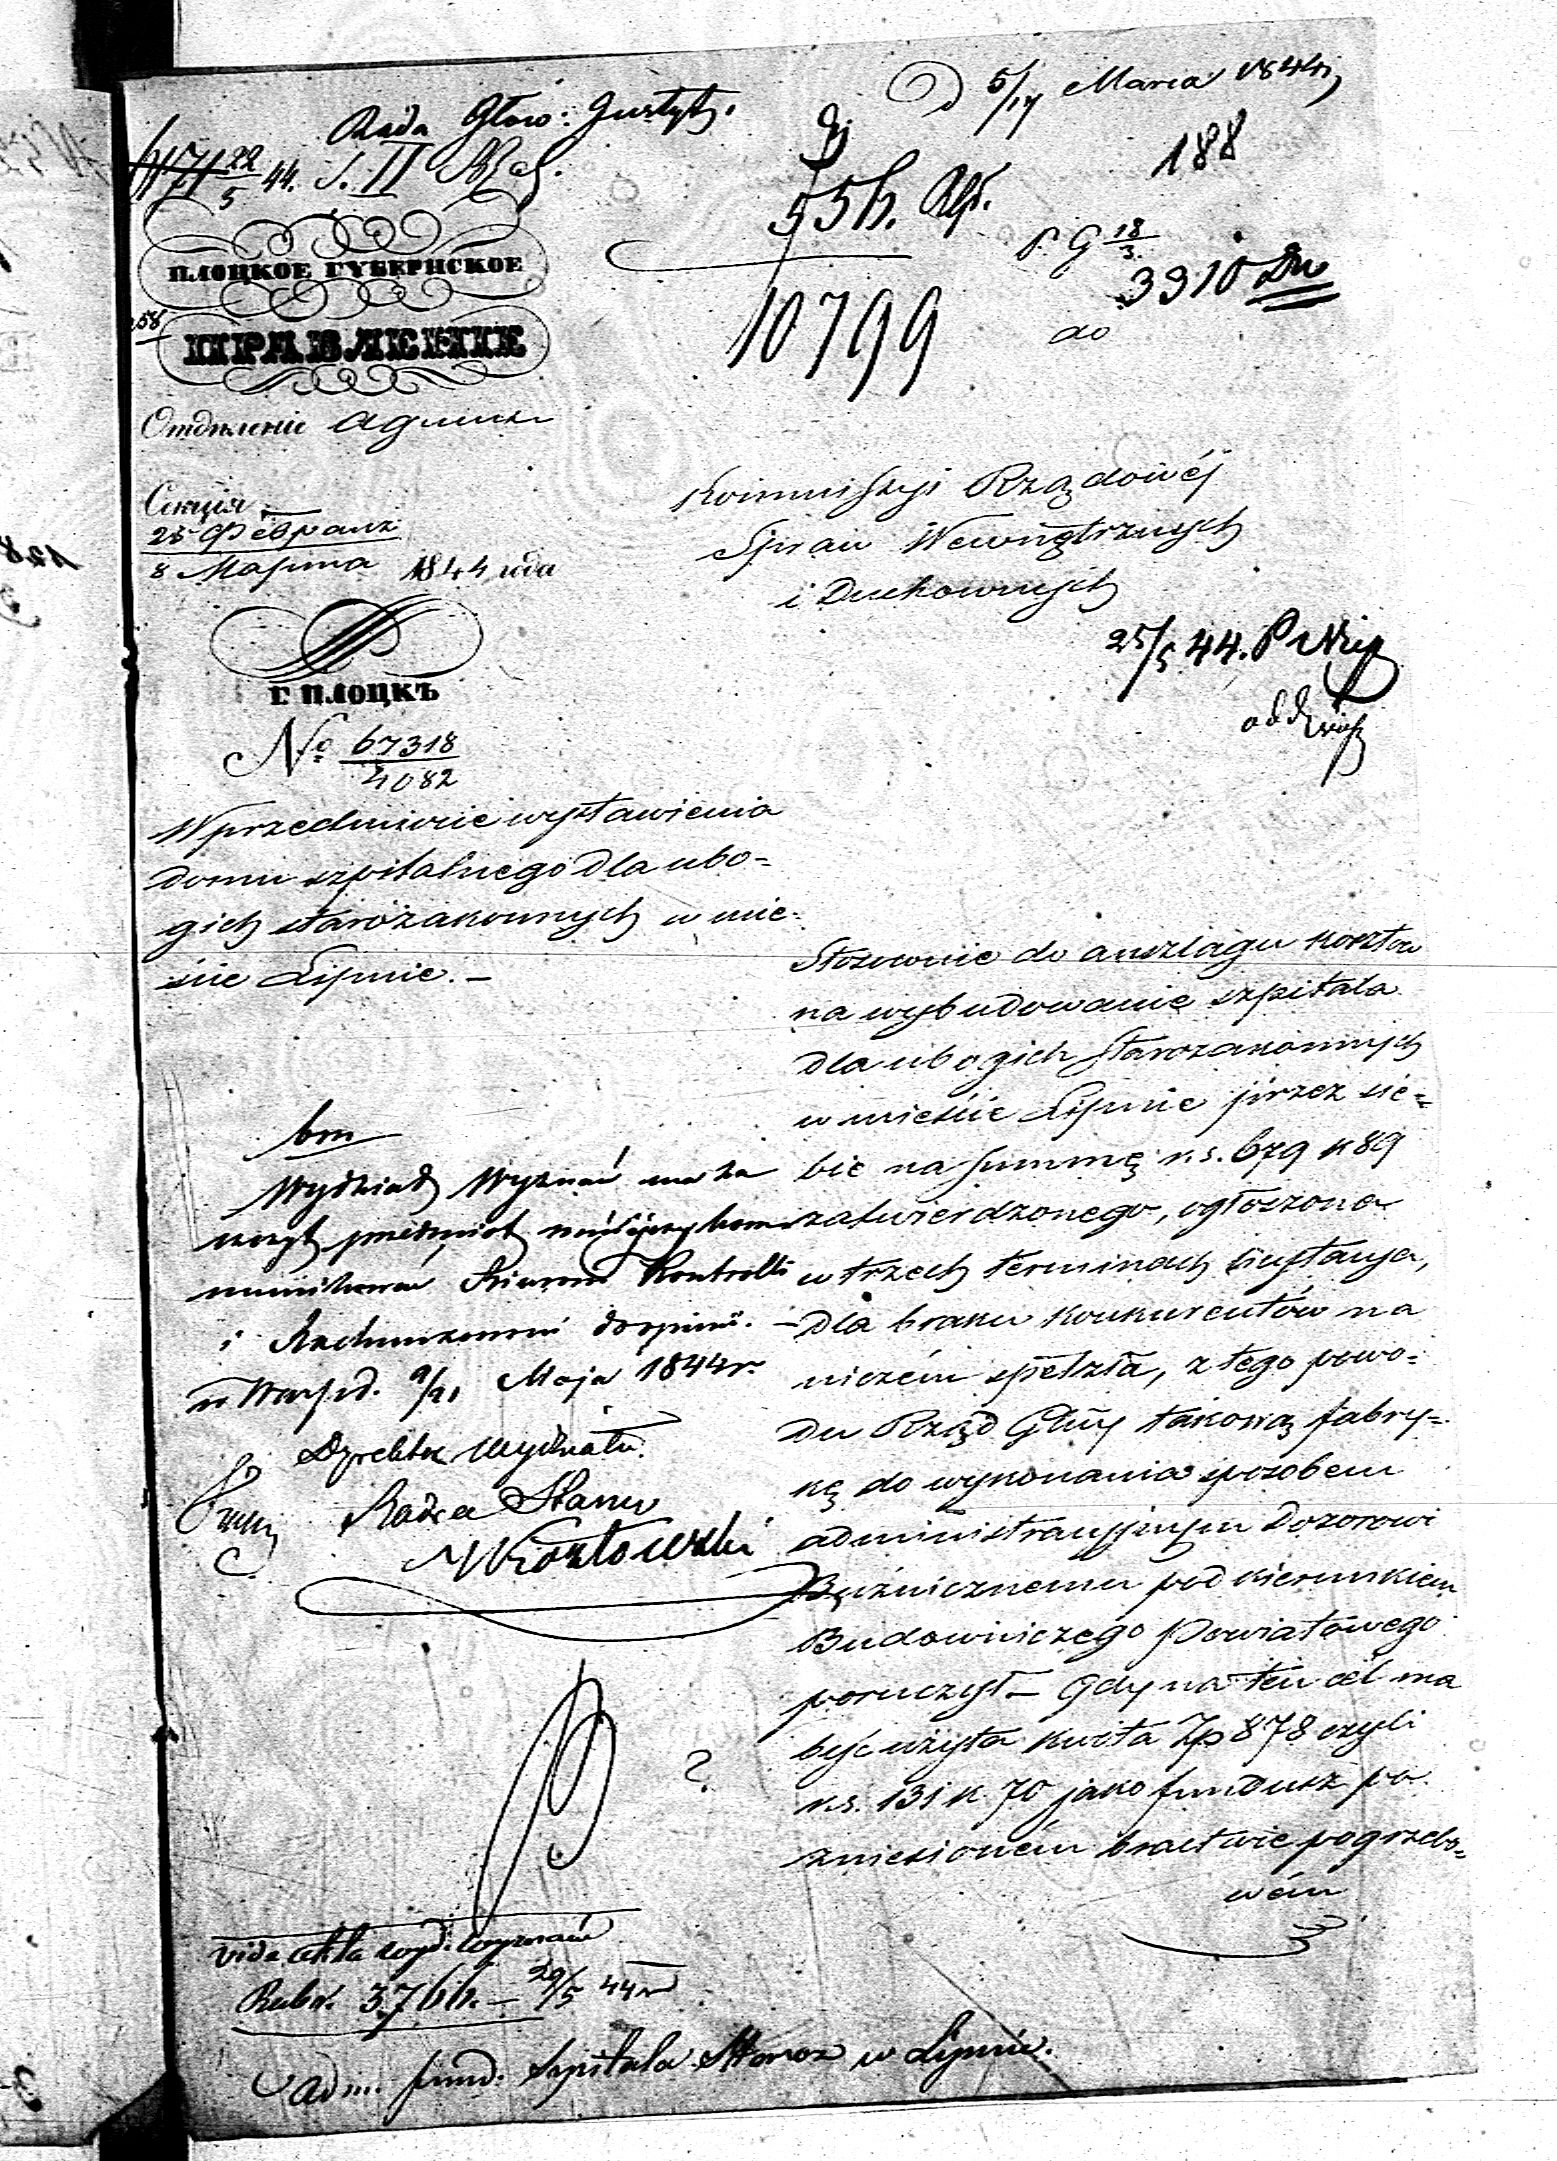 D 5/17 Marca 1844
Rada Głów: Instyt.
22/5 44. S. II
188
10799
P. G 18/3
3310
do
ПЛОЦКОЕ ГУБЕРНСКОЕ
ПРАВЛЕНІЕ
58
Отдѣленіе Админ
Секція
25 Февраля
8 Марта 1844 года
Г. ПЛОЦКЪ
№ 67318
4082
Kommissyi Rządowéj
Spraw Wewnętrznych
i Duchownych
25/5 44.
W przedmiocie wystawienia
domu szpitalnego dla ubo=
gich starozakonnych w mie=
ście Lipnie. —
Stosownie do anszlagu kosztów
na wybudowanie szpitala
dla ubogich starozakonnych
w mieście Lipnie przez sie=
bie na summę r.s. 679 k 89
zatwierdzonego, ogłoszona
w trzech terminach licytacya,
dla braku konkurentów na
niczém spełzła, z tego powo=
du Rząd Głny takową fabry=
kę do wykonania sposobem
administracyjnym Dozorowi
Bużnicznemu pod kierunkiem
Budowniczego Powiatowego
poruczył — Gdy na ten cel ma
być użyta kwota Zp 878 czyli
r.s. 131 k 70 jako fundusz po
zniesioném bractwie pogrzebo=
wém
Wydział Wyznań ma za
szczyt przedmiot niniejszy kom
munikować Biurowi Kontrolli
i Rachunkowości do opinii. —
w Warsz. d. 9/21 Maja 1844 r.
Dyrektor Wydziału
Radca Stanu
Kozłowski
?
vide akta wyd. wyznań
29/5 44 r
Adm. fund. Szpitala Staroz w Lipnie.